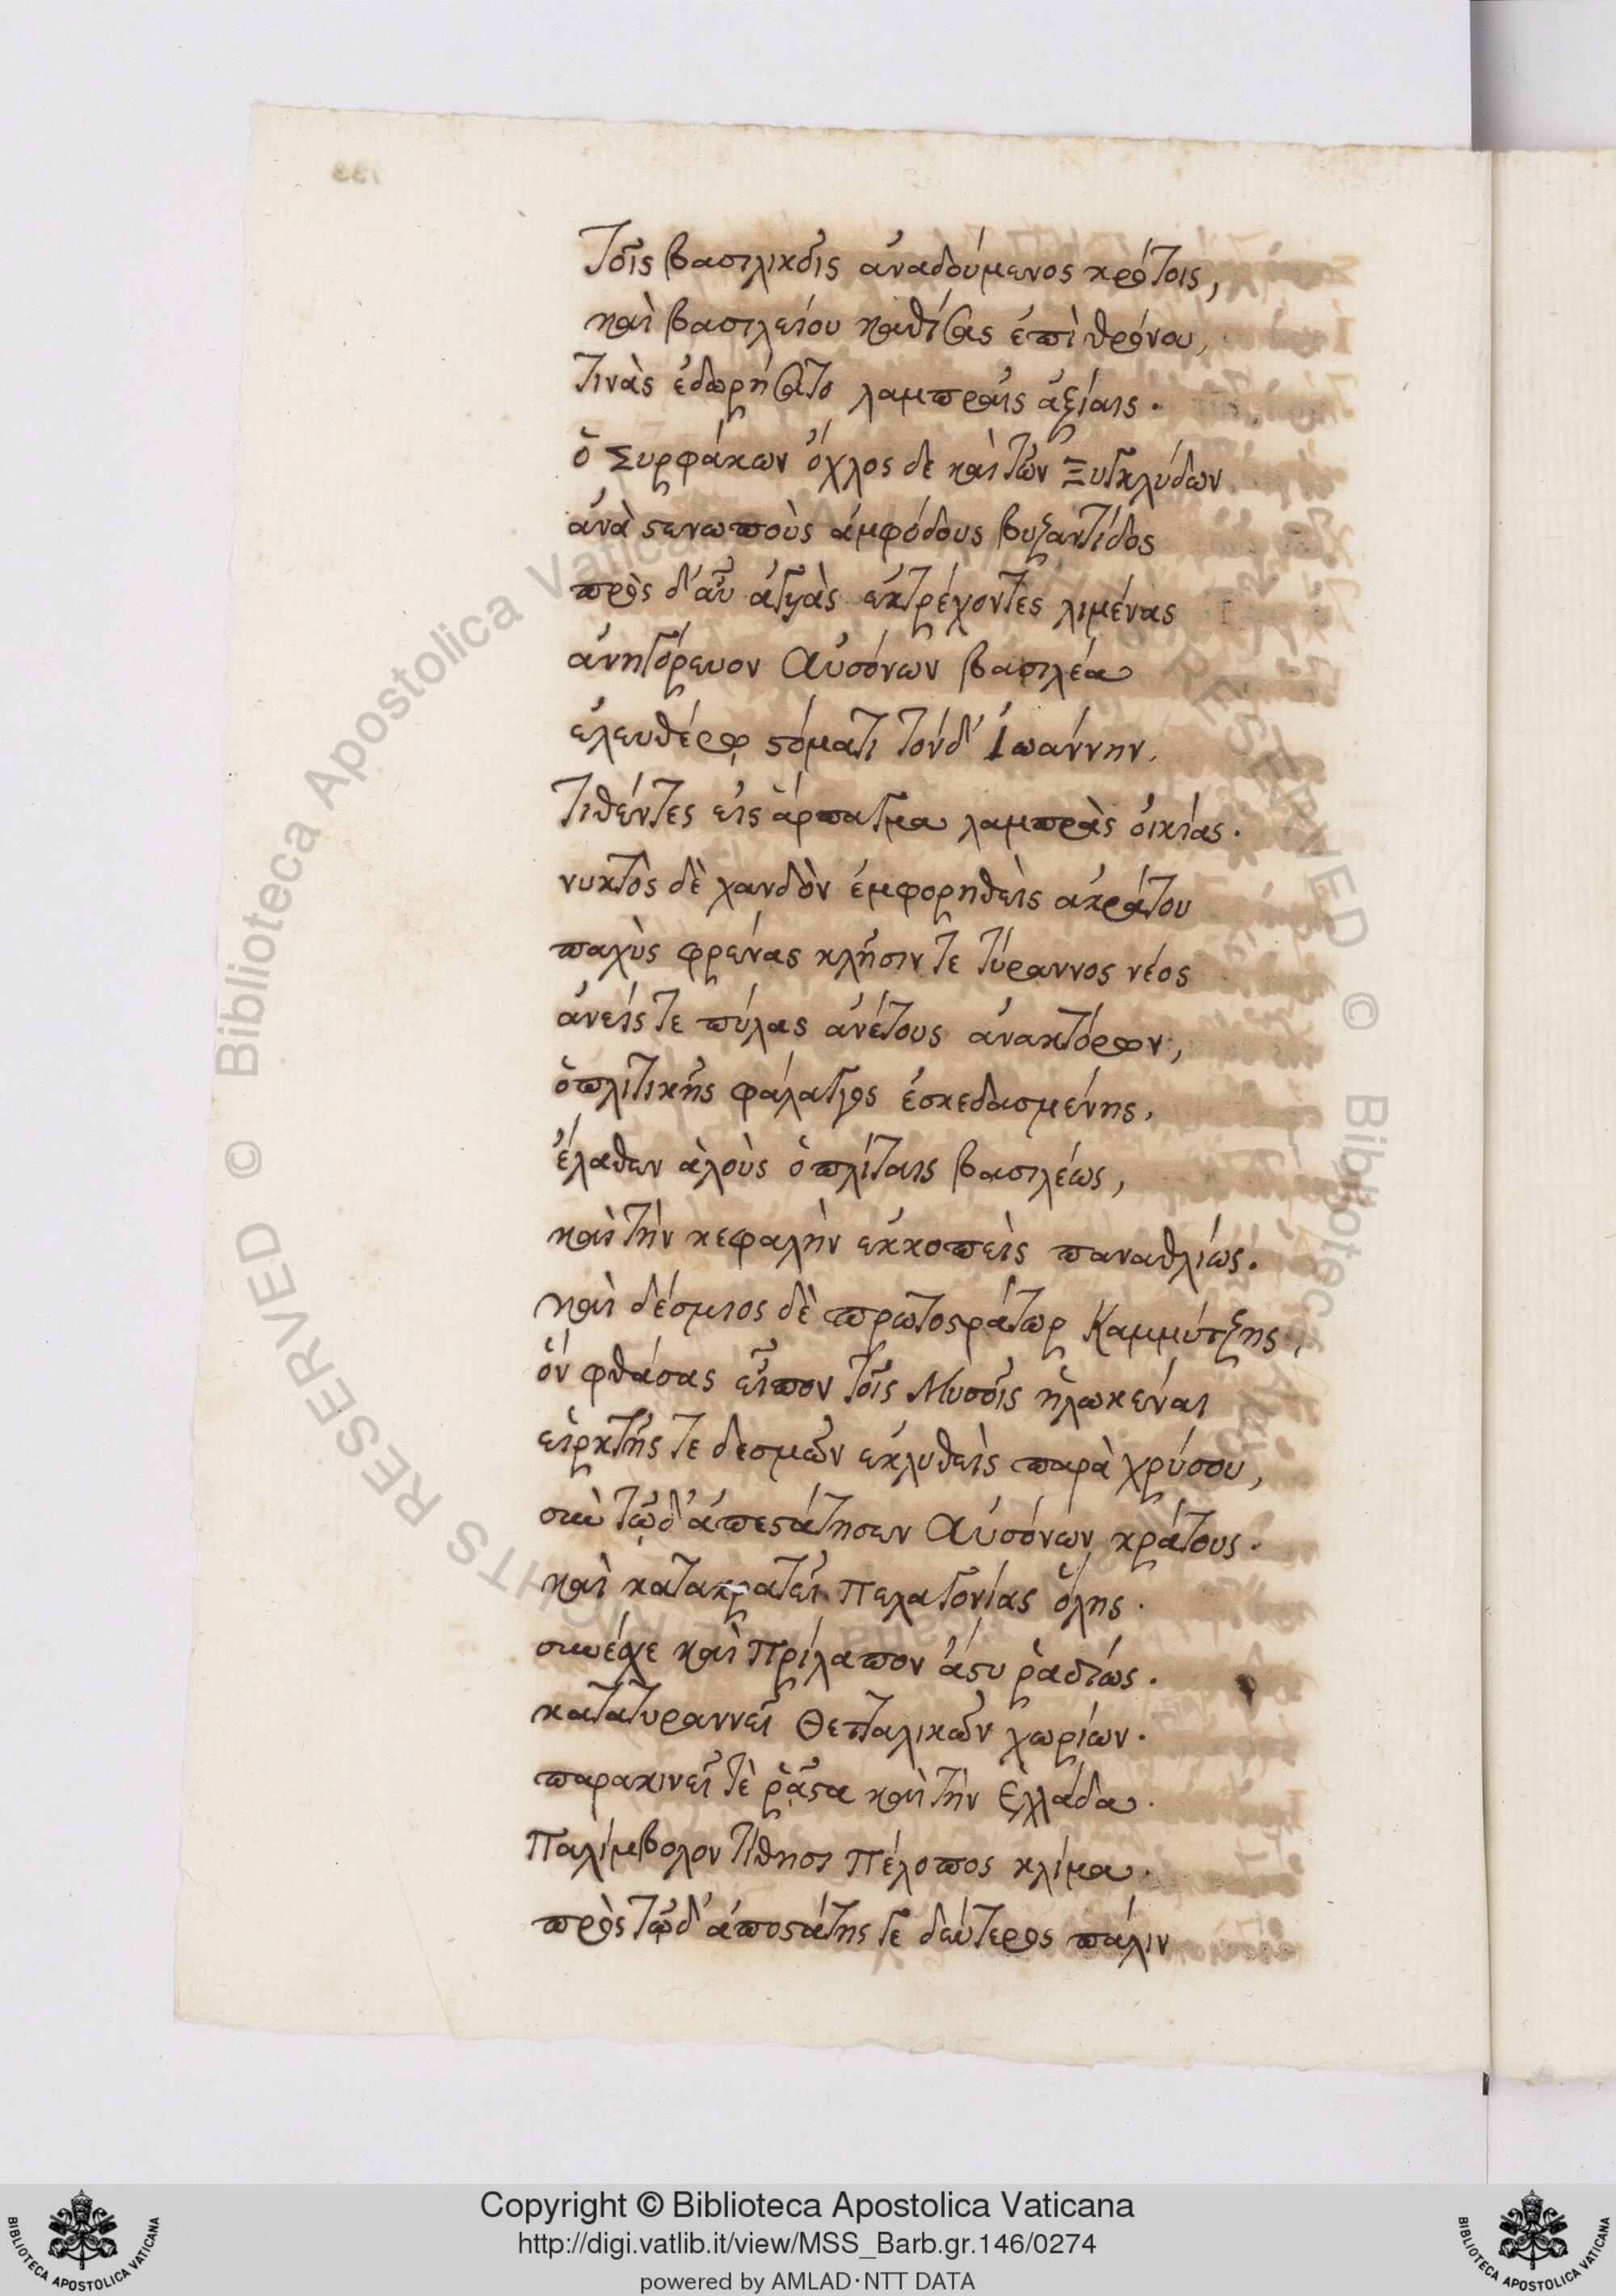 τοῖς βασιλικοῖς ἀναδούμενος κρότοις,
καὶ βασιλείου καθίσας ἐπὶ θρόνου,
τινὰς ἐδωρήσατο λαμπραῖς ἀξίαις.
ὁ Συρφάκων ὄχλος δε καὶ τῶν Ξυγκλύδων
ἀνὰ στενωποὺς ἀμφόδους βυζαντίδος
πρὸς δ' αὖ ἀγυιὰς ἐκτρέχοντες λιμένας
ἀνηγόρευον Αὐσόνων βασιλέα
ἐλευθέρῳ στόματι τόνδ' Ἰωάννην.
τιθέντες εἰς ἅρπαγμα λαμπρὰς οἰκίας.
νυκτὸς δὲ χανδὸν ἐμφορηθεὶς ἀκράτου
παχὺς φρένας κλῆσιν τε τύραννος νέος
ἀνείς τε πύλας ἀνέτους ἀνακτόρων,
ὁπλιτικῆς φάλαγγος ἐσκεδασμένης,
ἔλαθεν ἁλοὺς ὁπλίταις βασιλέως,
καὶ τὴν κεφαλὴν ἐκκοπεὶς παναθλίως.
καὶ δέσμιος δὲ πρωτοστράτωρ Καμμύτζης,
ὃν φθάσας εἶπον τοῖς Μυσοῖς ἡλωκέναι
εἱρκτῆς τε δεσμῶν ἐκλυθεὶς παρὰ χρύσου,
σὺν τῷδ' ἀπεστάτησεν Αὐσόνων κράτους.
καὶ κατακρατεῖ Πελαγονίας ὅλης.
συνέσχε καὶ Πρίλαπον ἄστυ ῥαδίως.
κατατυραννεῖ Θετταλικῶν χωρίων.
παρακινεῖ τὲ ῥᾷστα καὶ τὴν Ἑλλάδα.
Παλίμβολον τίθησι Πέλοπος κλίμα.
πρὸς τῷδ' ἀποστάτης γε δεύτερος πάλιν
Copyright © Biblioteca Apostolica Vaticana
http://digi.vatlib.it/view/MSS_Barb.gr.146/0274
powered by AMLAD·NTT DATA